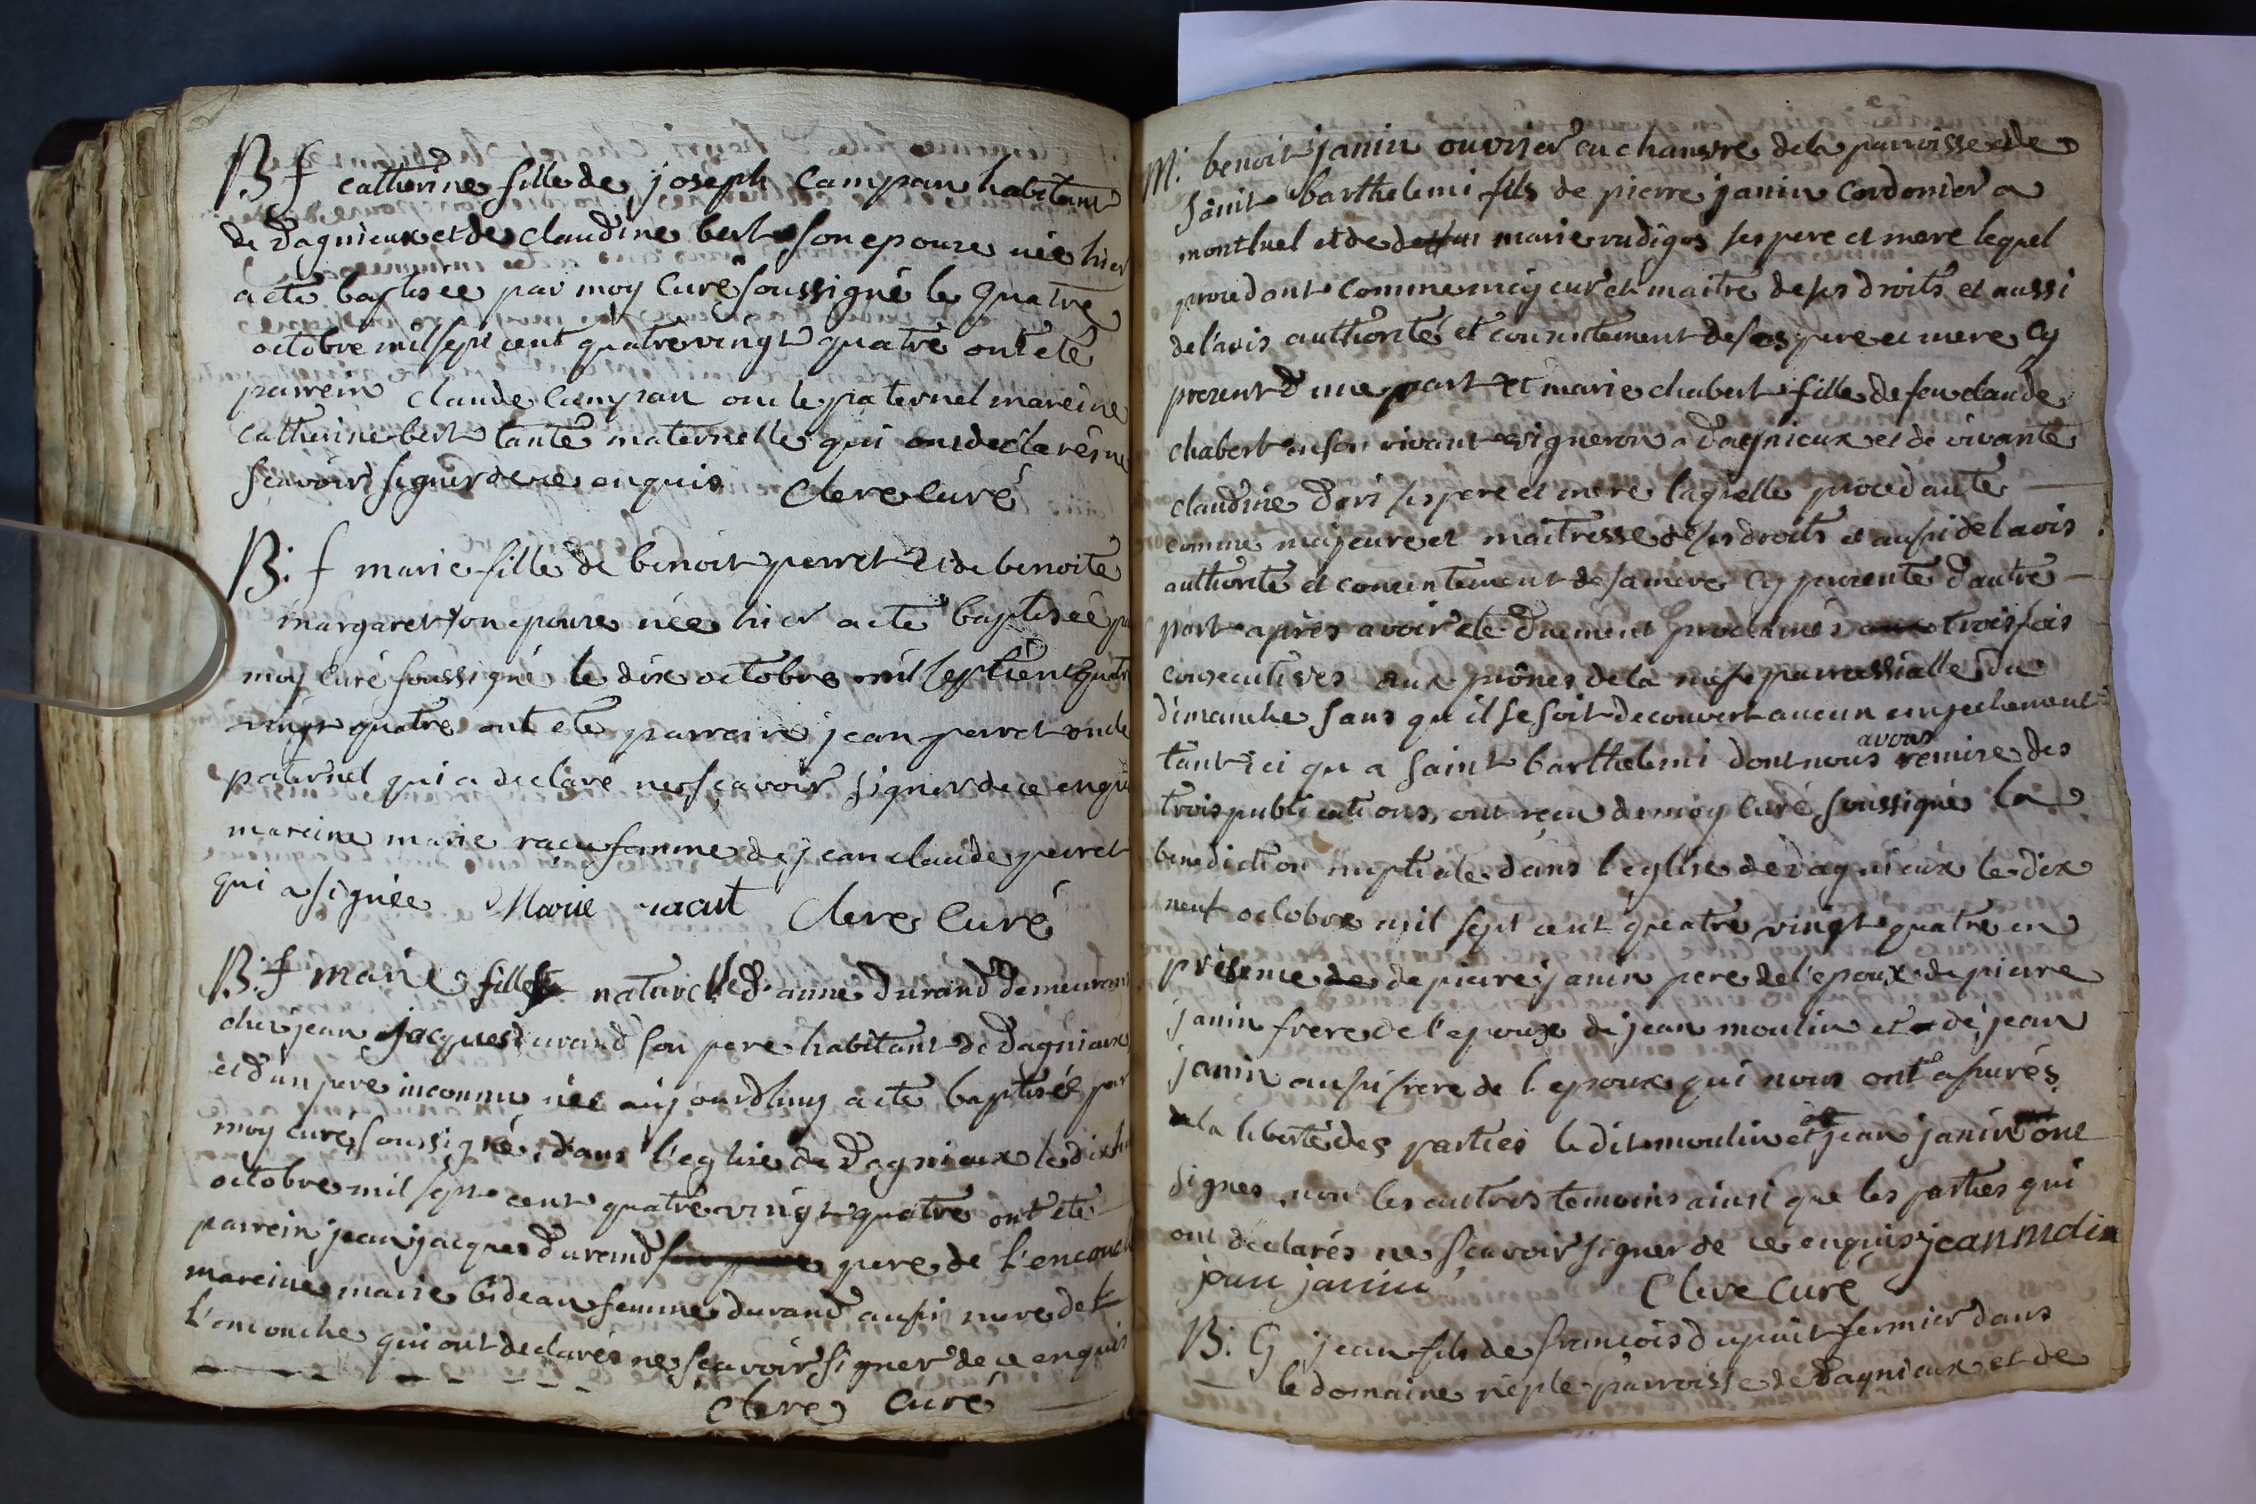 B f catherine fille de joseph campan habitant
de dagnieux et de claudine bert son epouse née hier
a eté baptisée par moy Curé soussigné le quatre
octobre mil sept cent quatre vingt quatre ont eté
parrein claude campan oncle paternel mareine
catherine bert tante maternelle qui ont declarés ne
scavoir signer de ce enquis Clere curé
B. f marie fille de benoit perret et de benoite
margaret son epouse née hier a eté baptisée p
moy curé soussigné le dix octobre mil sept cent quatre
vingt quatre ont eté parrein jean perret oncle
paternel qui a declaré ne sçavoir signer de ce enqui
mareine marie racu femme de jean claude perret
qui a signée Marie racut Clere Curé
B. f marie fille naturelle d'anne durand demeurant
chez jean jacques durand son pere habitant de dagnieux
et d'un pere inconnu née aujourdhuy a eté baptisée par
moy curé soussigné, dans l'eglise de dagnieux le dix hu
octobre mil sept cent quatre vingt quatre ont eté
parrein jean jacques durand pere de l'encouch
mareine marie bideau femme durand aussi mere de
l'encouche qui ont declarés ne sçavoir signer de ce enquis
Clere Curé
M. benoit janin ouvrier en chanvre de la parroisse de
saint barthelemi fils de pierre janin cordonier a
montluel et de marie rudigos ses pere et mere lequel
procedant comme majeur et maitre de ses droits et aussi
de l'avis authorité et consentement de ses pere et mere cy
present d'une part et marie chabert fille de feu claude
chabert en son vivant vigneron a dagnieux et de vivante
claudine dori ses pere et mere laquelle procedante
comme majeure et maitresse de ses droits et aussi de l'avis
authorité et consentement de sa mere cy presente d'autre
part après avoir eté duement proclamés trois fois
consecutives aux prônes de la messe parroissialle du
dimanche sans qu'il se soit decouvert aucun empechement
tant ici qu a saint barthelemi dont nous avons remise des
trois publications, ont reçu de moy curé soussigné la
benediction nuptiale dans l'eglise de dagnieux le dix
neuf octobre mil sept cent quatre vingt quatre en
présence de pierre janin pere de l'epoux de pierre
janin frere de l'epoux de jean moulin et de jean
janin aussi frere de l'epoux qui nous ont assurés
la liberté des parties le dit moulin et jean janin ont
signes non les autres temoins ainsi que les parties qui
ont déclarés ne scavoir signer de ce enquis jean molin
jean janin Clere Curé
B. G jean fils de francois dupuit fermier dans
le domaine neple parroisse de dagnieux et de